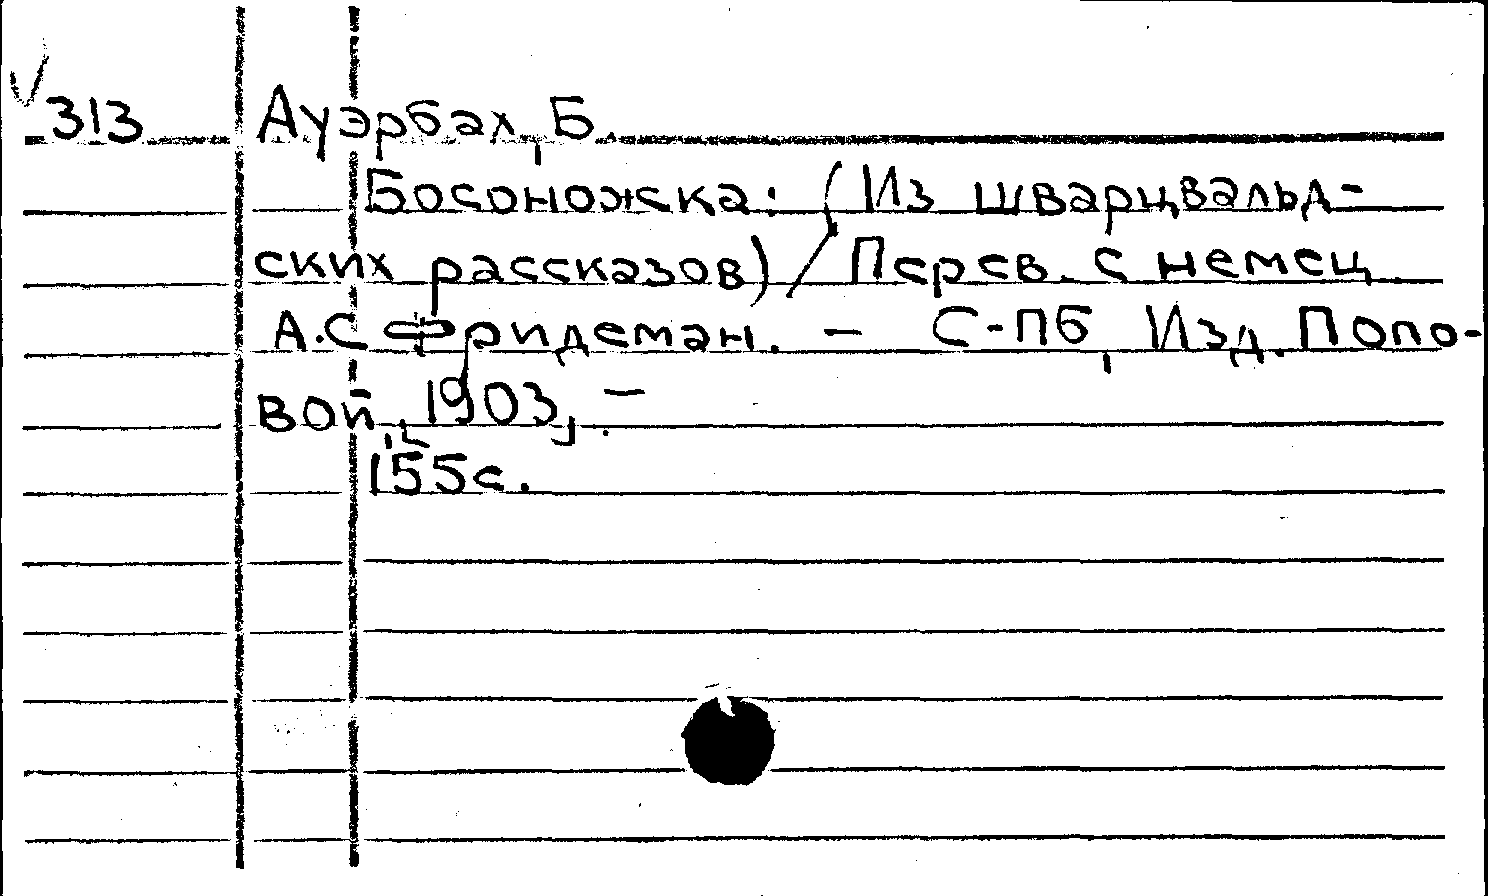 313 Ауэрбах, Б.
Босоножка: (Из шварцвальд-
ских рассказов) / Перев. с немец.
А.С Фридеман. – С-Пб, Изд. Попо-
вой, 1903, –
155с.